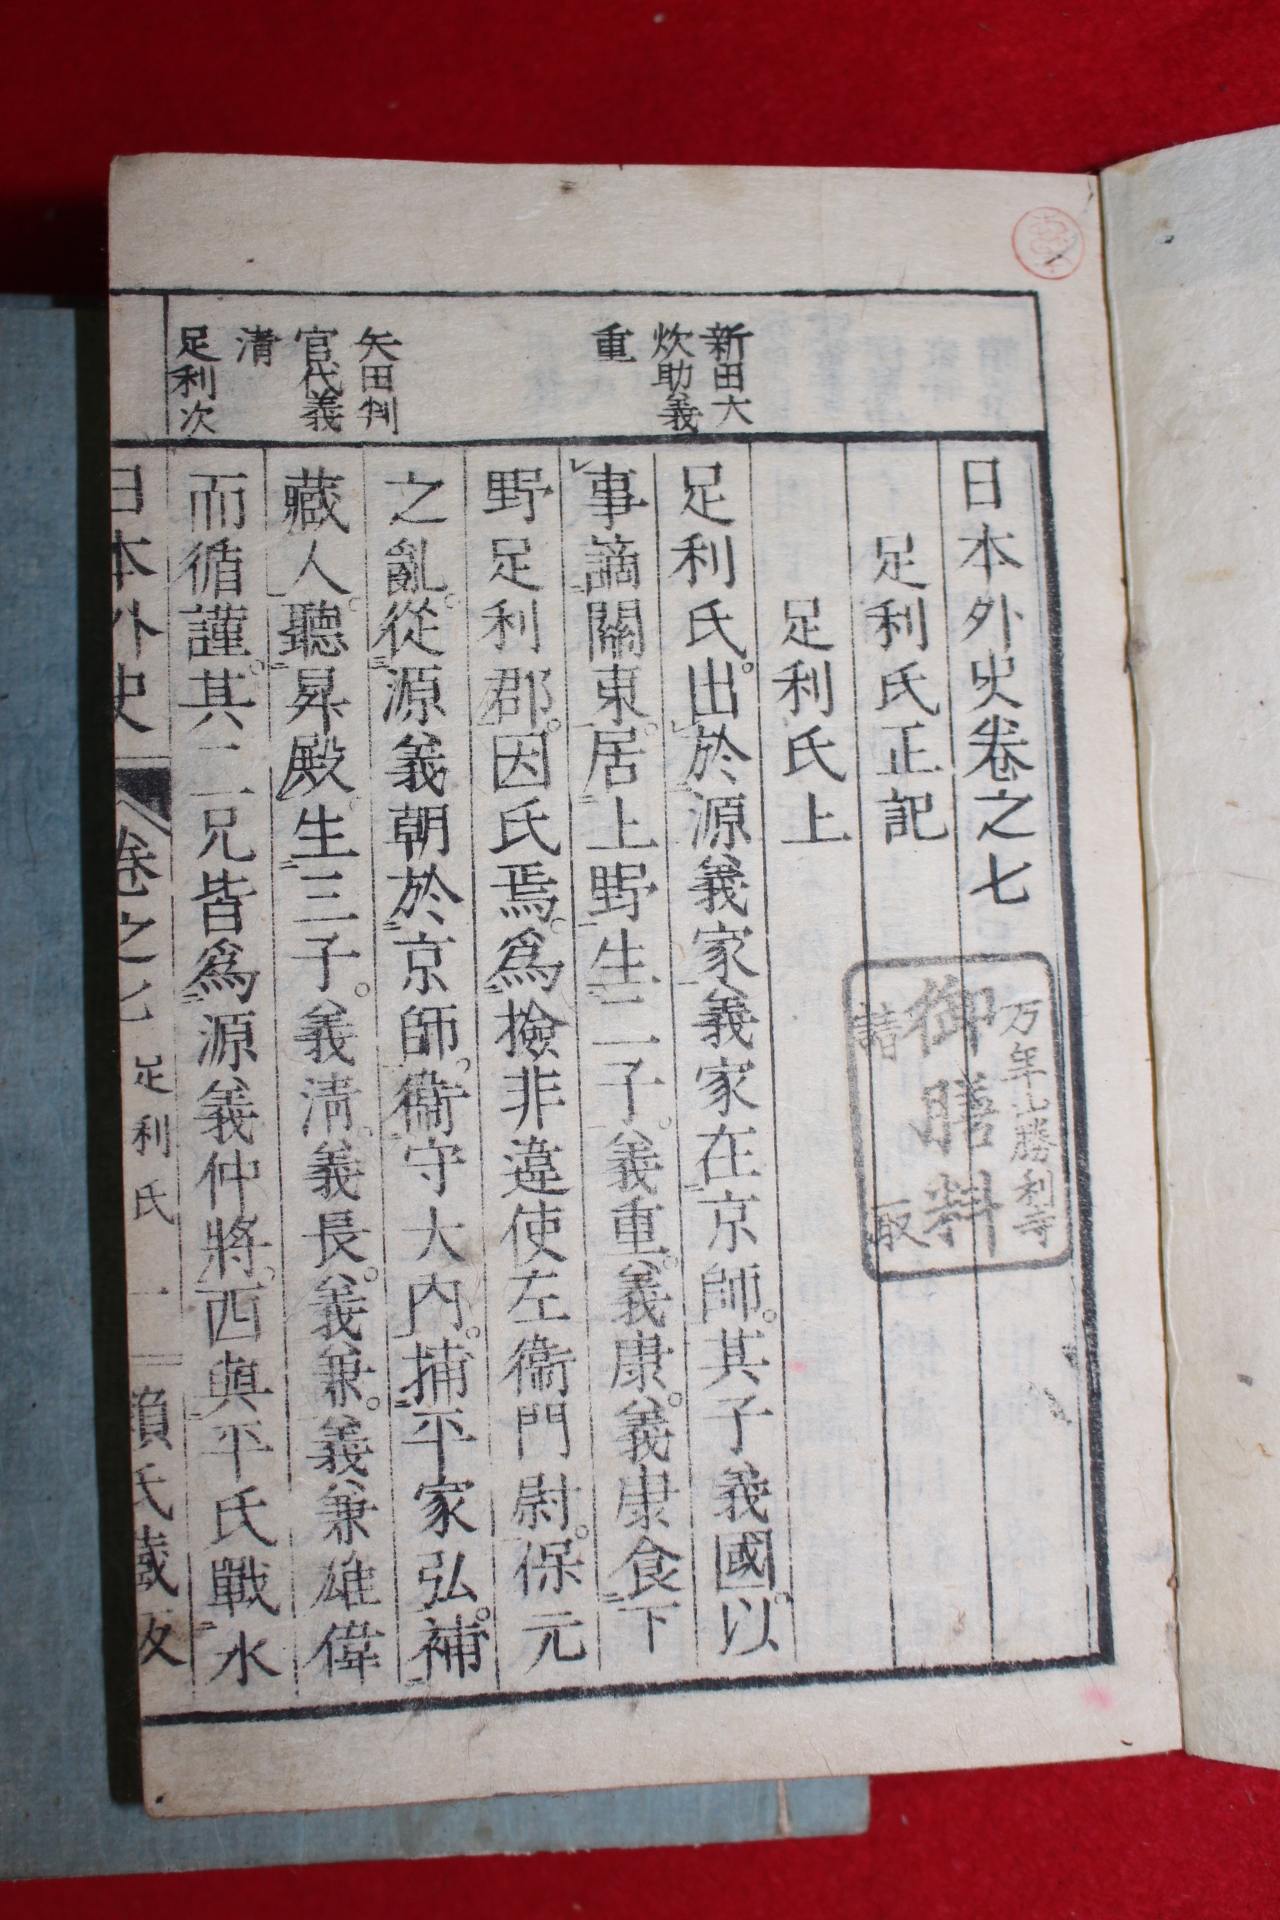 日本外史卷之七
足利氏正記
足利氏上
足利氏。出於源義家義家在京師。其子義國。以
事謫關東。居上野生二子。義重。義康。義康食下
野足利郡。因氏焉。爲撿非違使左衞門尉。保元
之亂。從源義朝於京師。衞守大內。捕平家弘。補
藏人。聽昇殿。生三子。義淸。義長。義兼。義兼雄偉
而循謹。其二兄皆爲源義仲將。西與平氏戰水
新田大
炊助義
重
矢田判
官代義
清
足利次
日本外史
卷之七
足利氏
一
賴氏藏板
万年山勝利寺
御膳料
請取